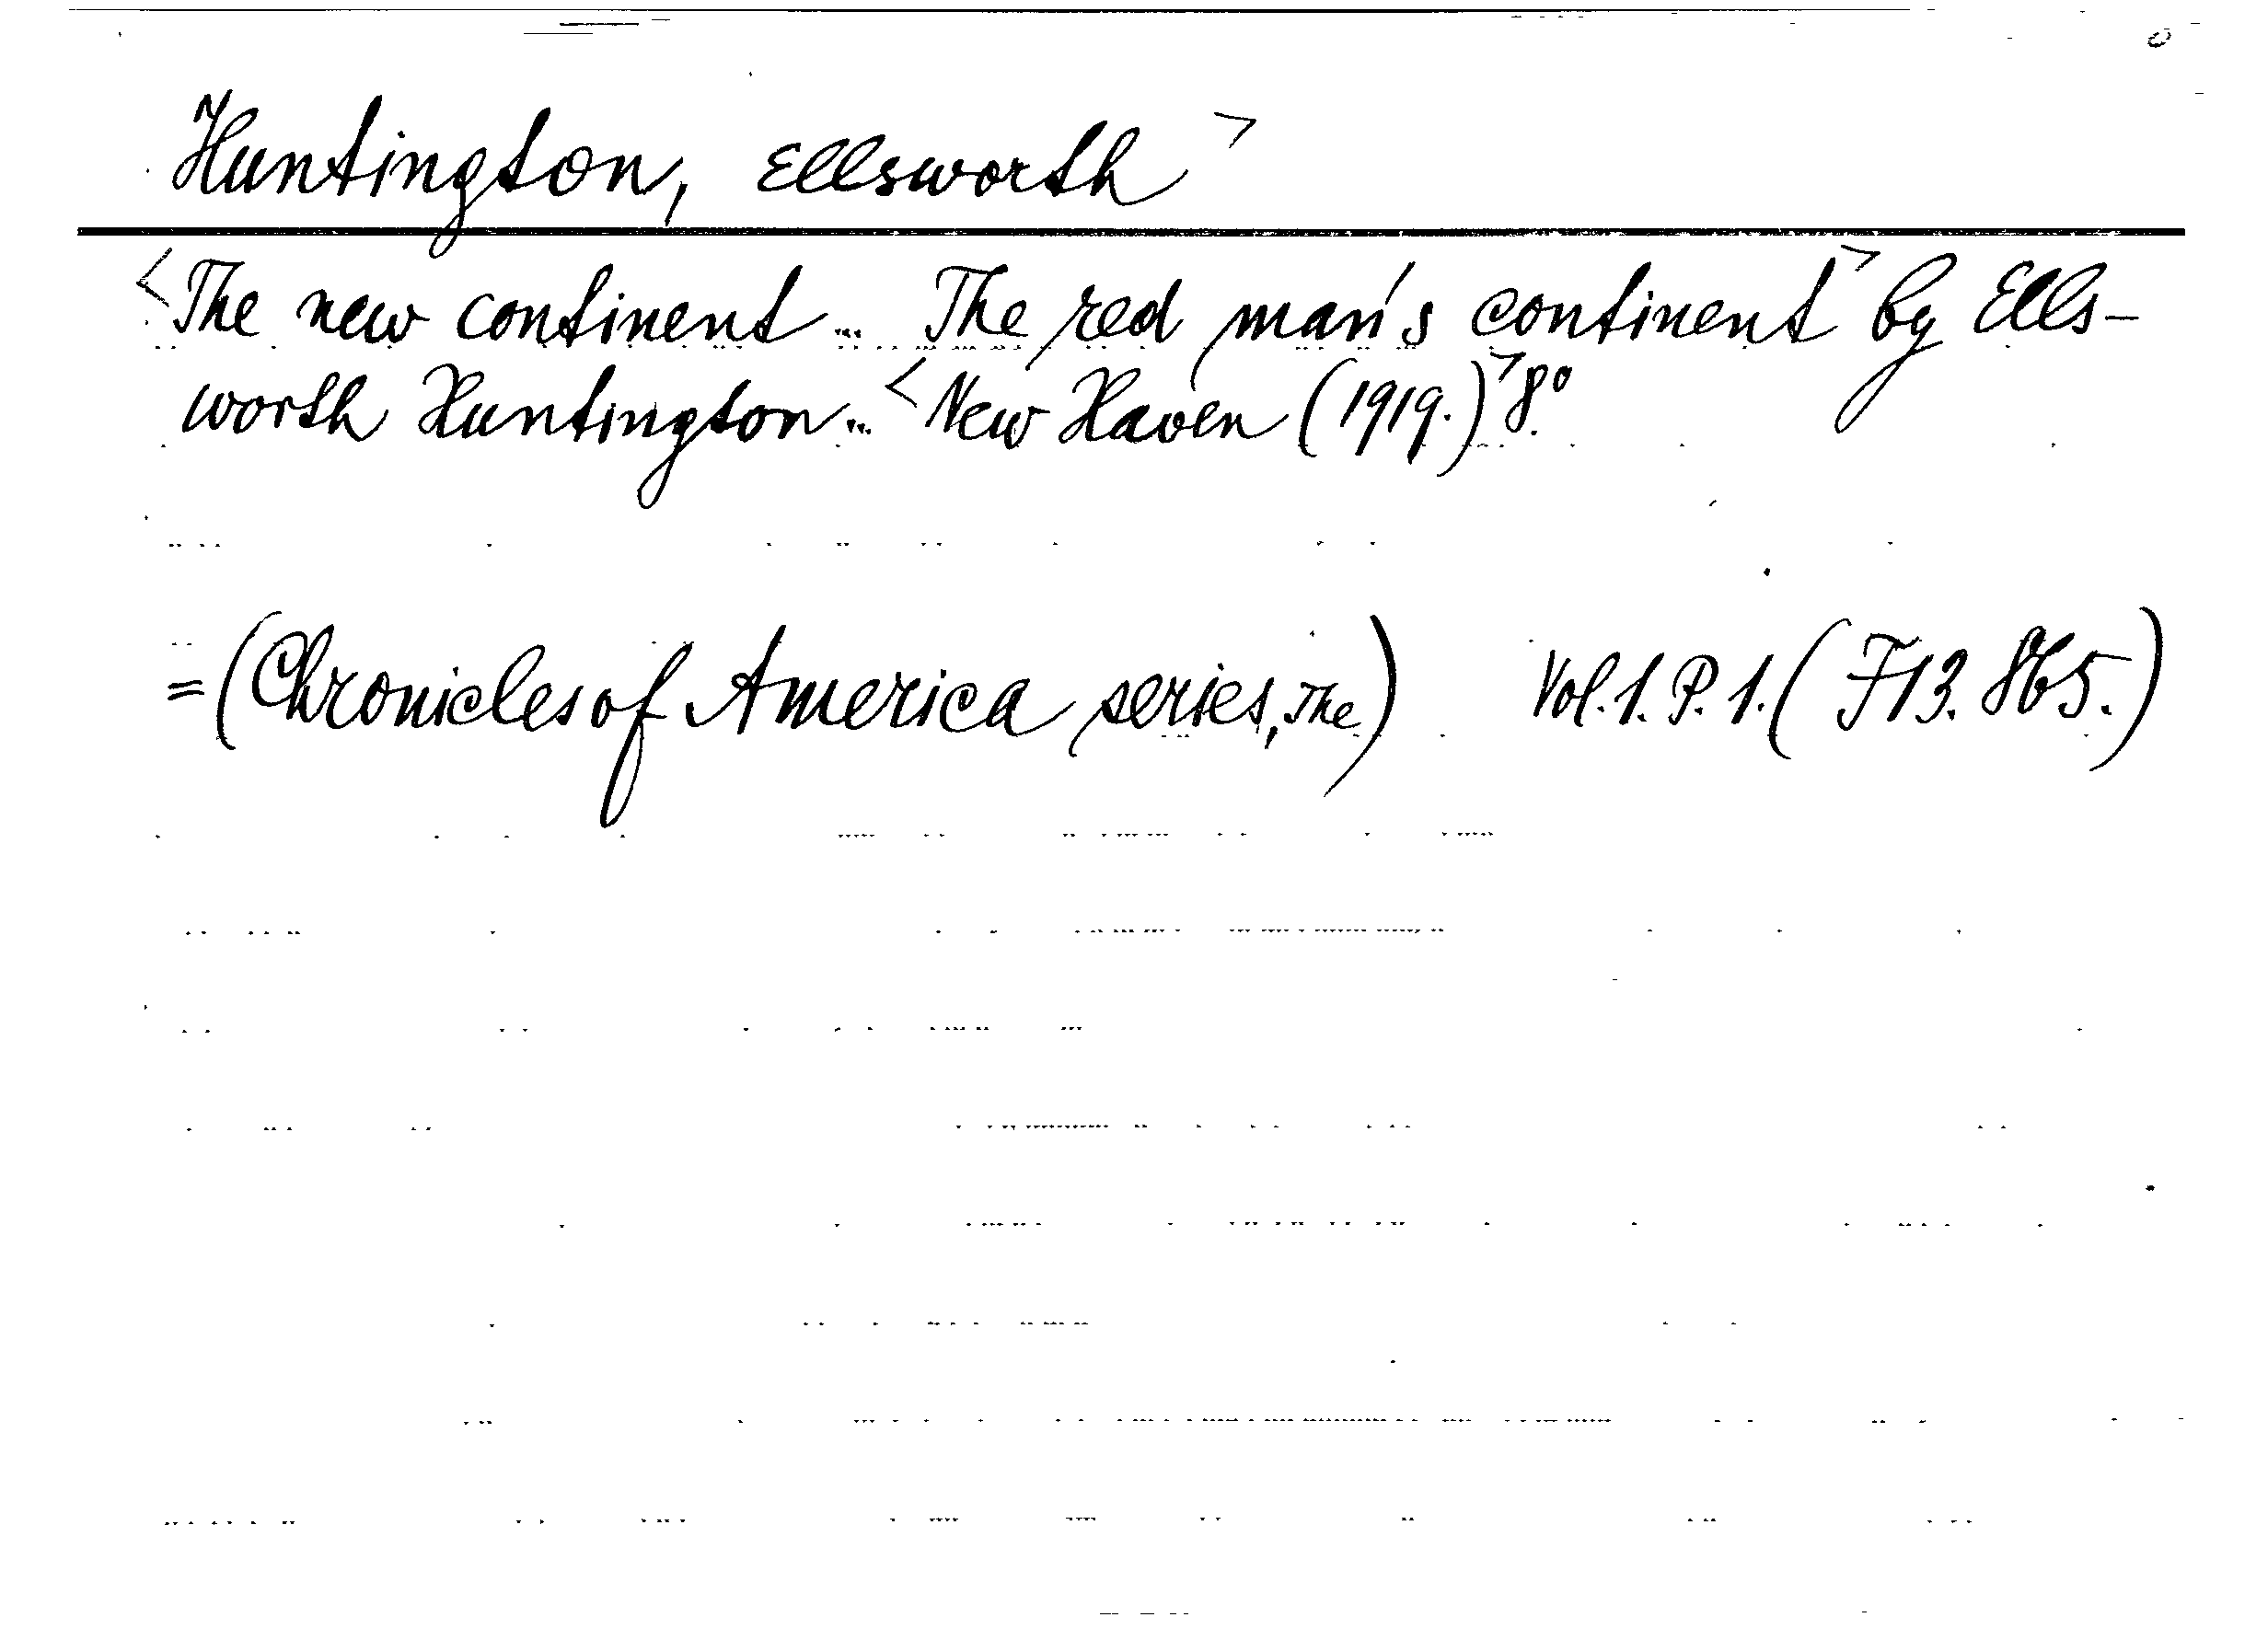 Huntington, Ellsworth >
< The new continent... The red man's continent > by Ells-
worth Huntington... < New Haven (1919.) > 8°.
= (Chronicles of America series, The) Vol. 1. P. 1. (F13. 865.)